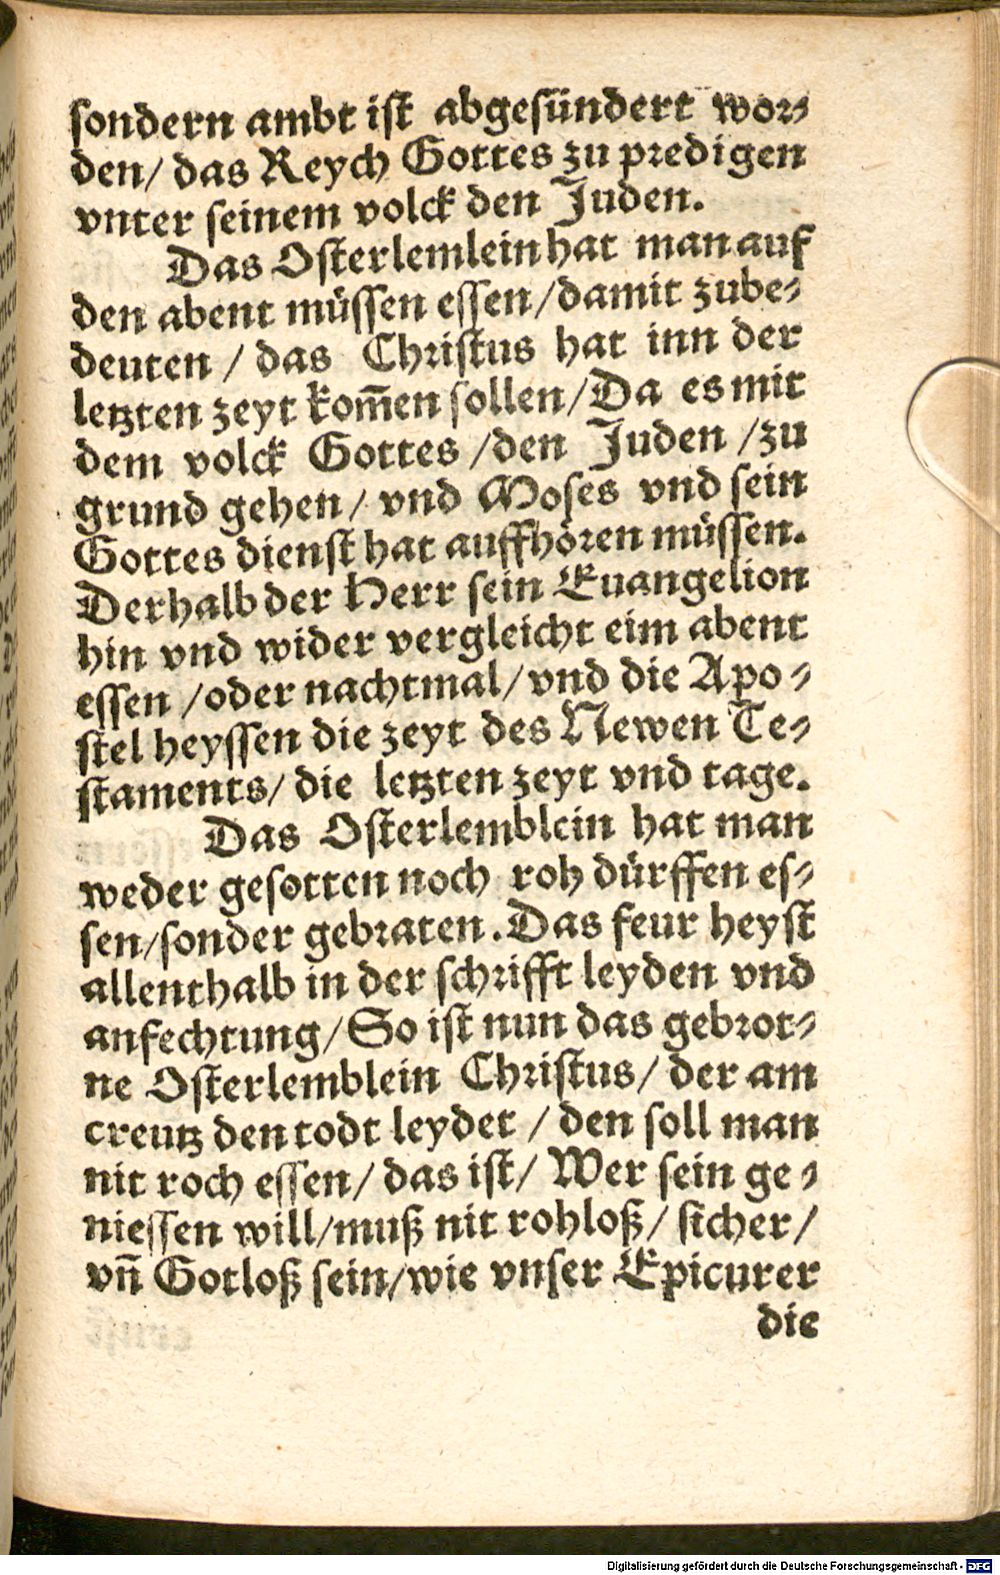 sondern ambt ist abgesündert wor⸗
den/ das Reych Gottes zu predigen
vnter seinem volck den Juden.
Das Osterlemlein hat man auf
den abent müssen essen/damit zube⸗
deuten / das Christus hat inn der
letzten zeyt kom̃en sollen/Da es mit
dem volck Gottes /den Juden /zu
grund gehen/ vnd Moses vnd sein
Gottes dienst hat auffhören müssen.
Derhalb der Herr sein Euangelion
hin vnd wider vergleicht eim abent
essen /oder nachtmal/ vnd die Apo⸗
stel heyssen die zeyt des Newen Te⸗
staments/ die letzten zeyt vnd tage.
Das Osterlemblein hat man
weder gesotten noch roh dürffen es⸗
sen/sonder gebraten. Das feur heyst
allenthalb in der schrifft leyden vnd
anfechtung/ So ist nun das gebrot⸗
ne Osterlemblein Christus/ der am
creutz den todt leydet / den soll man
nit roch essen/ das ist/ Wer sein ge⸗
niessen will/muß nit rohloß/ sicher/
vñ Gotloß sein/wie vnser Epicurer
die
Digitalisierung gefördert durch die Deutsche Forschungsgemeinschaft - DFG